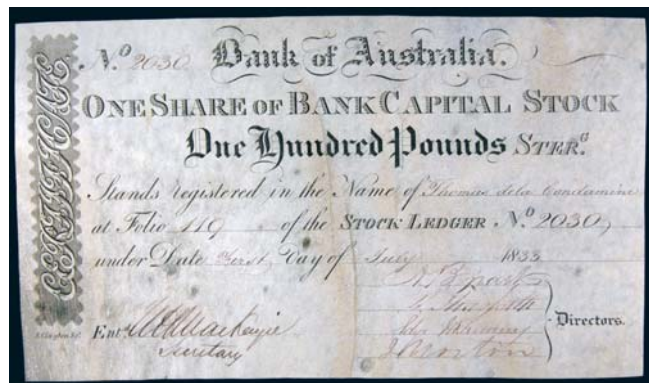 N.º 2030 Bank of Australia.
ONE SHARE OF BANK CAPITAL STOCK
One Hundred Pounds STER.G
Stands registered in the Name of Thomas dela Condamine
at Folio 119 of the STOCK LEDGER N.º 2030,
under Date First Day of July 1833
Ent.d Mackenzie
Secretary
Directors.
CERTIFICATE